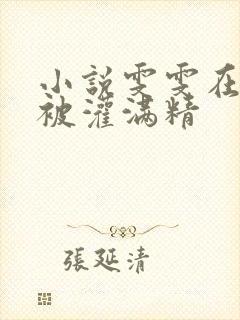 小說雯雯在
被灌滿精
張延清